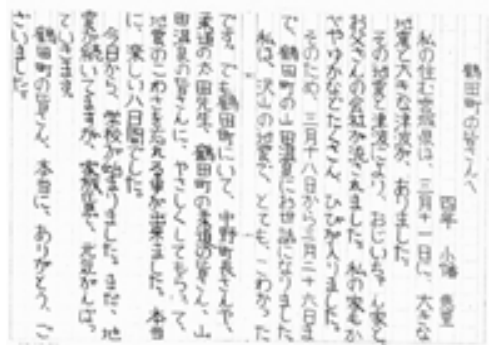 鶴田町の皆さんへ
四年 小
私の住む宮城県は、三月十一日に、大きな
地震と大きな津波が、ありました。
その地震と津波により、おじいちゃん家と
お父さんの会社が流されました。私の家もか
べやゆかなどたくさん、ひびが入りました。
そのため、三月十八日から三月二十六日ま
で、鶴田町の山田温泉にお世話になりました。
私は、沢山の地震で、とても、こわかった
です。でも鶴田町にいて、中野町長さんや、
柔道の太田先生、鶴田町の柔道の皆さん、山
田温泉の皆さんに、やさしくしてもらって、
地震のこわさを忘れる事が出来ました。本当
に、楽しい八日間でした。
今日から、学校が始まりました。まだ、地
震が続いてますが、家族全員で、元気にがんばっ
ていきます。
鶴田町の皆さん、本当に、ありがとう、ご
ざいました。